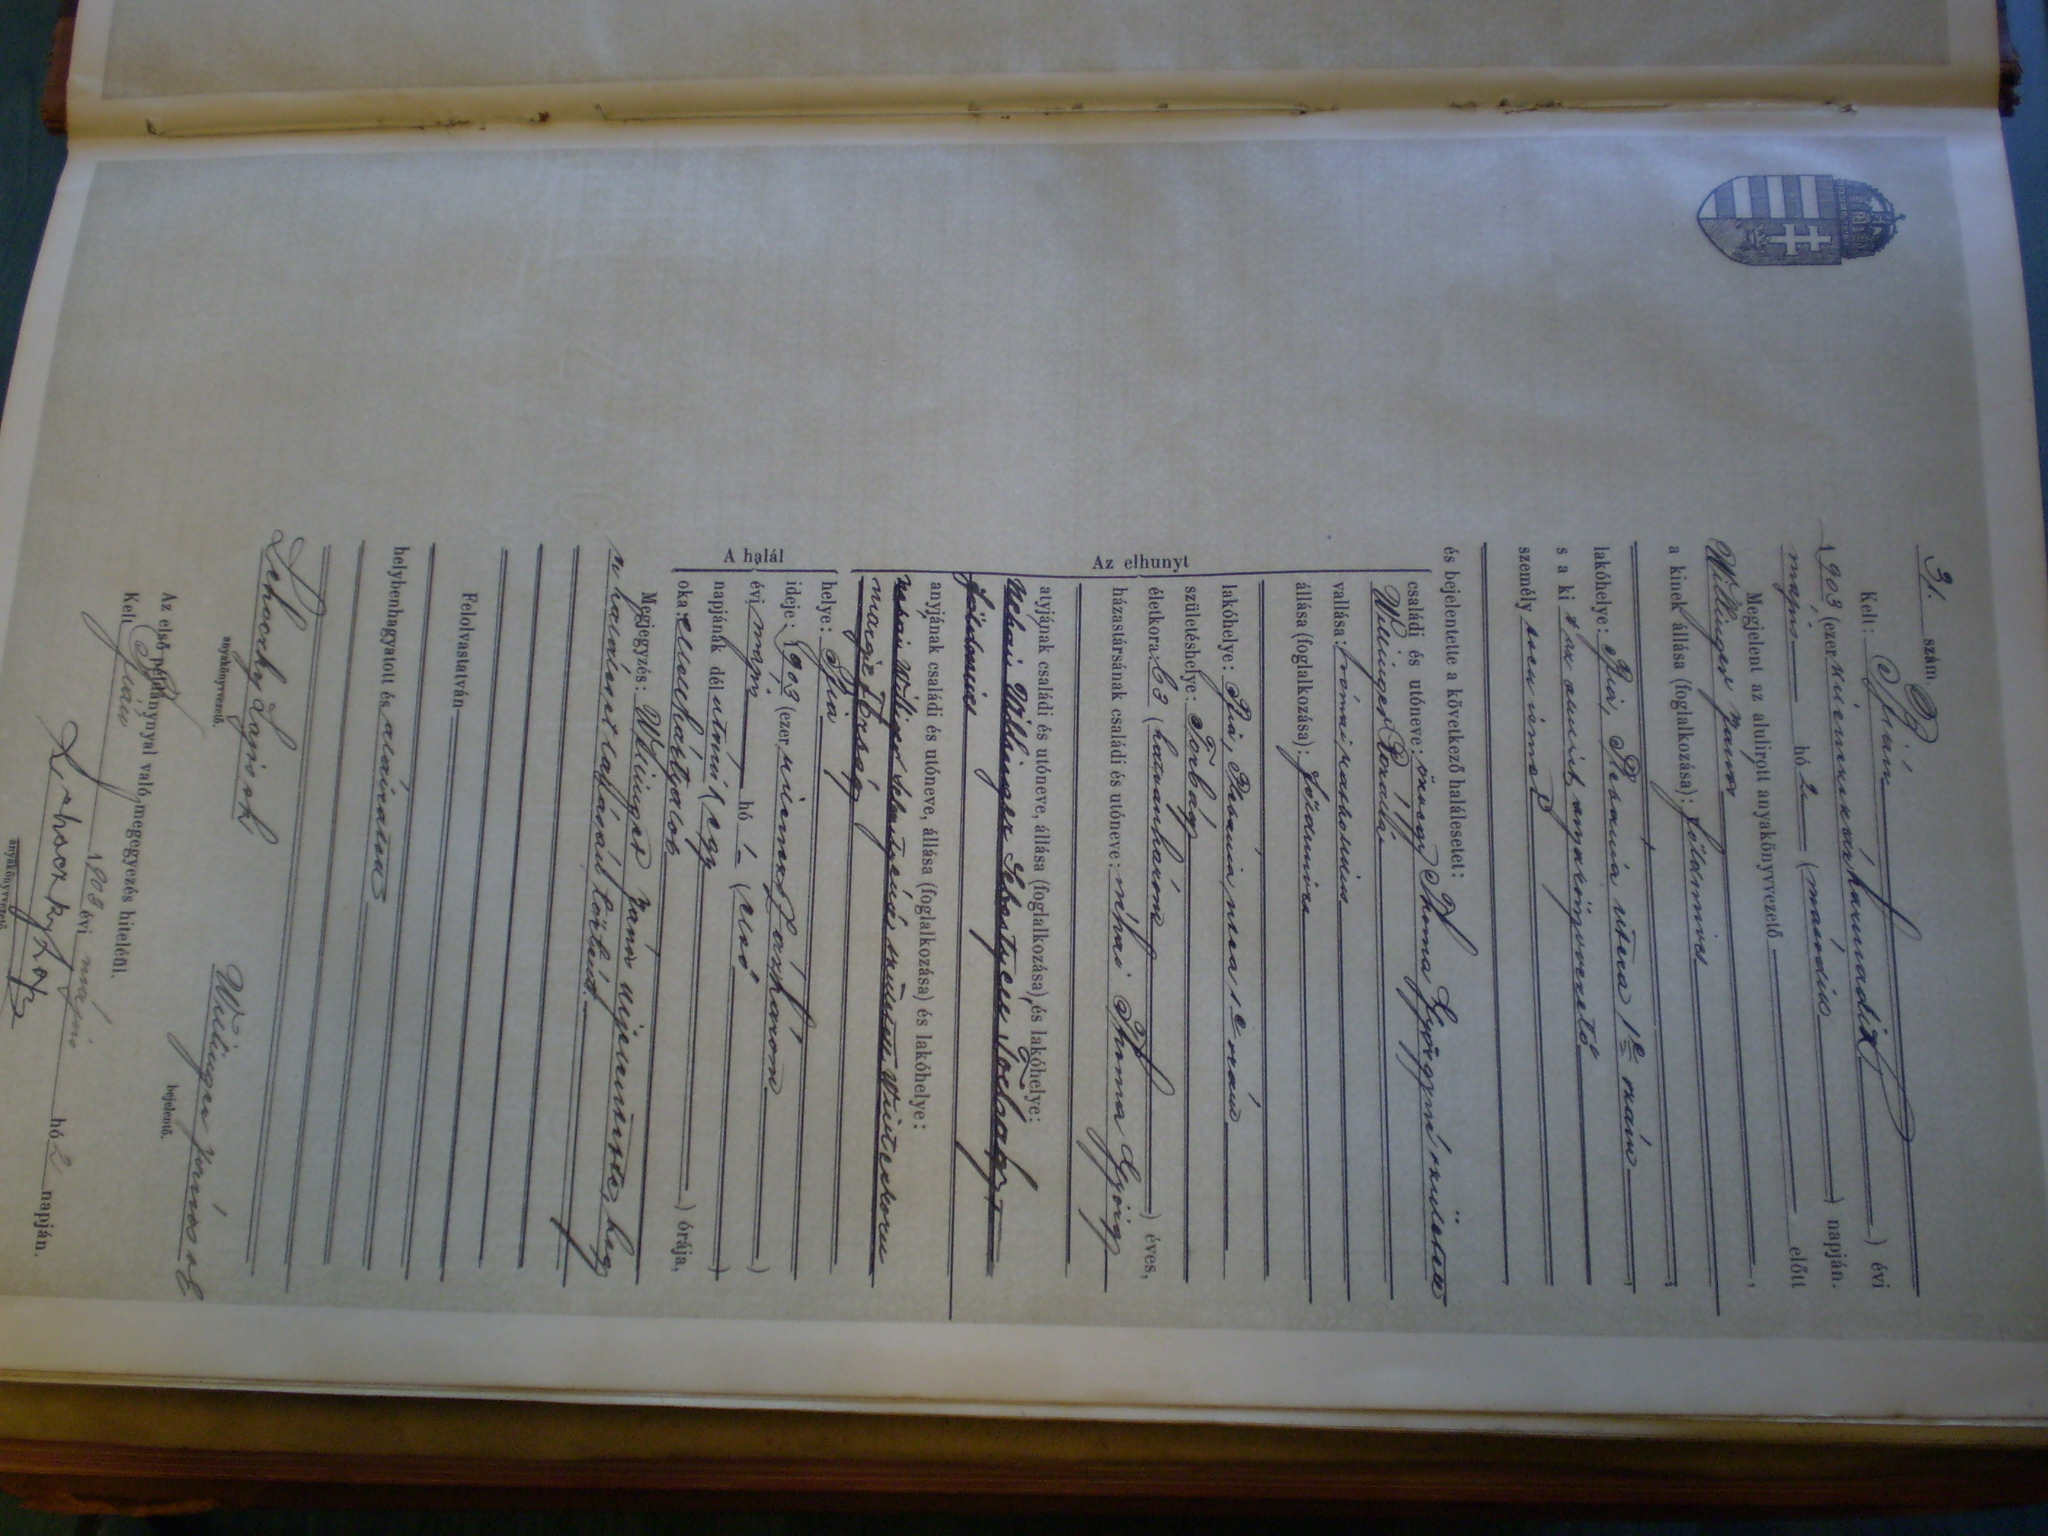 31. szám.
Kelt: Bián
1903 (ezer kilenczszázharmadik) évi
május hó 2 (második) napján.
Megjelent az alulirott anyakönyvvezető előtt
Willinger János
a kinek állása (foglalkozása): földmíves
lakóhelye: Bia,
s a ki az anyakönyvvezető
személy ismer
és bejelentette a következő halálesetet:
Az elhunyt
családi és utóneve: özvegy Thuma Györgyné született
Willinger Rozália
vallása: római katholikus
állása (foglalkozása): földmíves
lakóhelye: Bia,
születéshelye: Torbágy
életkora: 63 (hatvanhárom) éves,
házastársának családi és utóneve: néhai Thuma György
atyjának családi és utóneve, állása (foglalkozása) és lakóhelye:
néhai Willinger Sebestyén
földmíves
anyjának családi és utóneve, állása (foglalkozása) és lakóhelye:
néhai Willinger Sebestyénné született
Torbágy
A halál
helye: Bia
ideje: 1903 (ezerkilenczszázhárom)
évi május hó 1 (első)
napjának délutáni 1 (egy) órája,
oka:
Megjegyzés: Willinger János kijelentette, hogy
a haláleset
Felolvastatván
helybenhagyatott és aláíratott
Lehoczky Lajos sk
anyakönyvvezető.
Willinger János sk
bejelentő.
Az első példánynyal való megegyezés hiteléül.
Kelt Bián 1903 évi május hó 2 napján.
Lehoczky Lajos
anyakönyvvezető